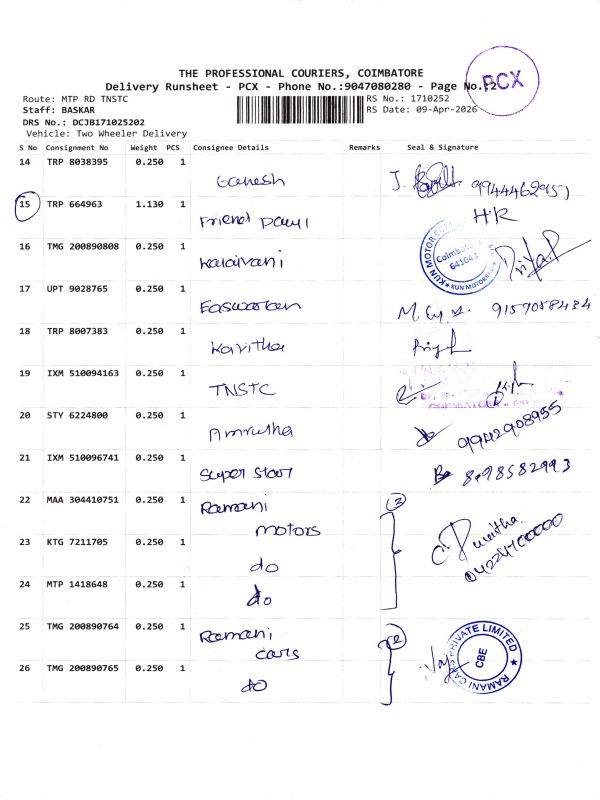 THE PROFESSIONAL COURIERS, COIMBATORE
Delivery Runsheet - PCX - Phone No.:9047080280 - Page No.:2
PCX
Route: MTP RD TNSTC
RS No.: 1710252
Staff: BASKAR
RS Date: 09-Apr-2026
DRS No.: DCJB171025202
Vehicle: Two Wheeler Delivery
S No Consignment No Weight PCS Consignee Details Remarks Seal & Signature
14 TRP 8038395 0.250 1 Ganesh 9944462951
15 TRP 664963 1.130 1 Friend HR
16 TMG 200890808 0.250 1 Kalaivani
KUN MOTOR
Coimbatore
17 UPT 9028765 0.250 1 Easwaran 9159058434
18 TRP 8007383 0.250 1 Kavitha
19 IXM 510094163 0.250 1 TNSTC
20 STY 6224800 0.250 1 Amrutha 9942908955
21 IXM 510096741 0.250 1 Super Star 8098582993
22 MAA 304410751 0.250 1 Ramani motors 3
23 KTG 7211705 0.250 1 do
24 MTP 1418648 0.250 1 do
25 TMG 200890764 0.250 1 Ramani cars 2
RAMANI CARS PRIVATE LIMITED
CBE
26 TMG 200890765 0.250 1 do